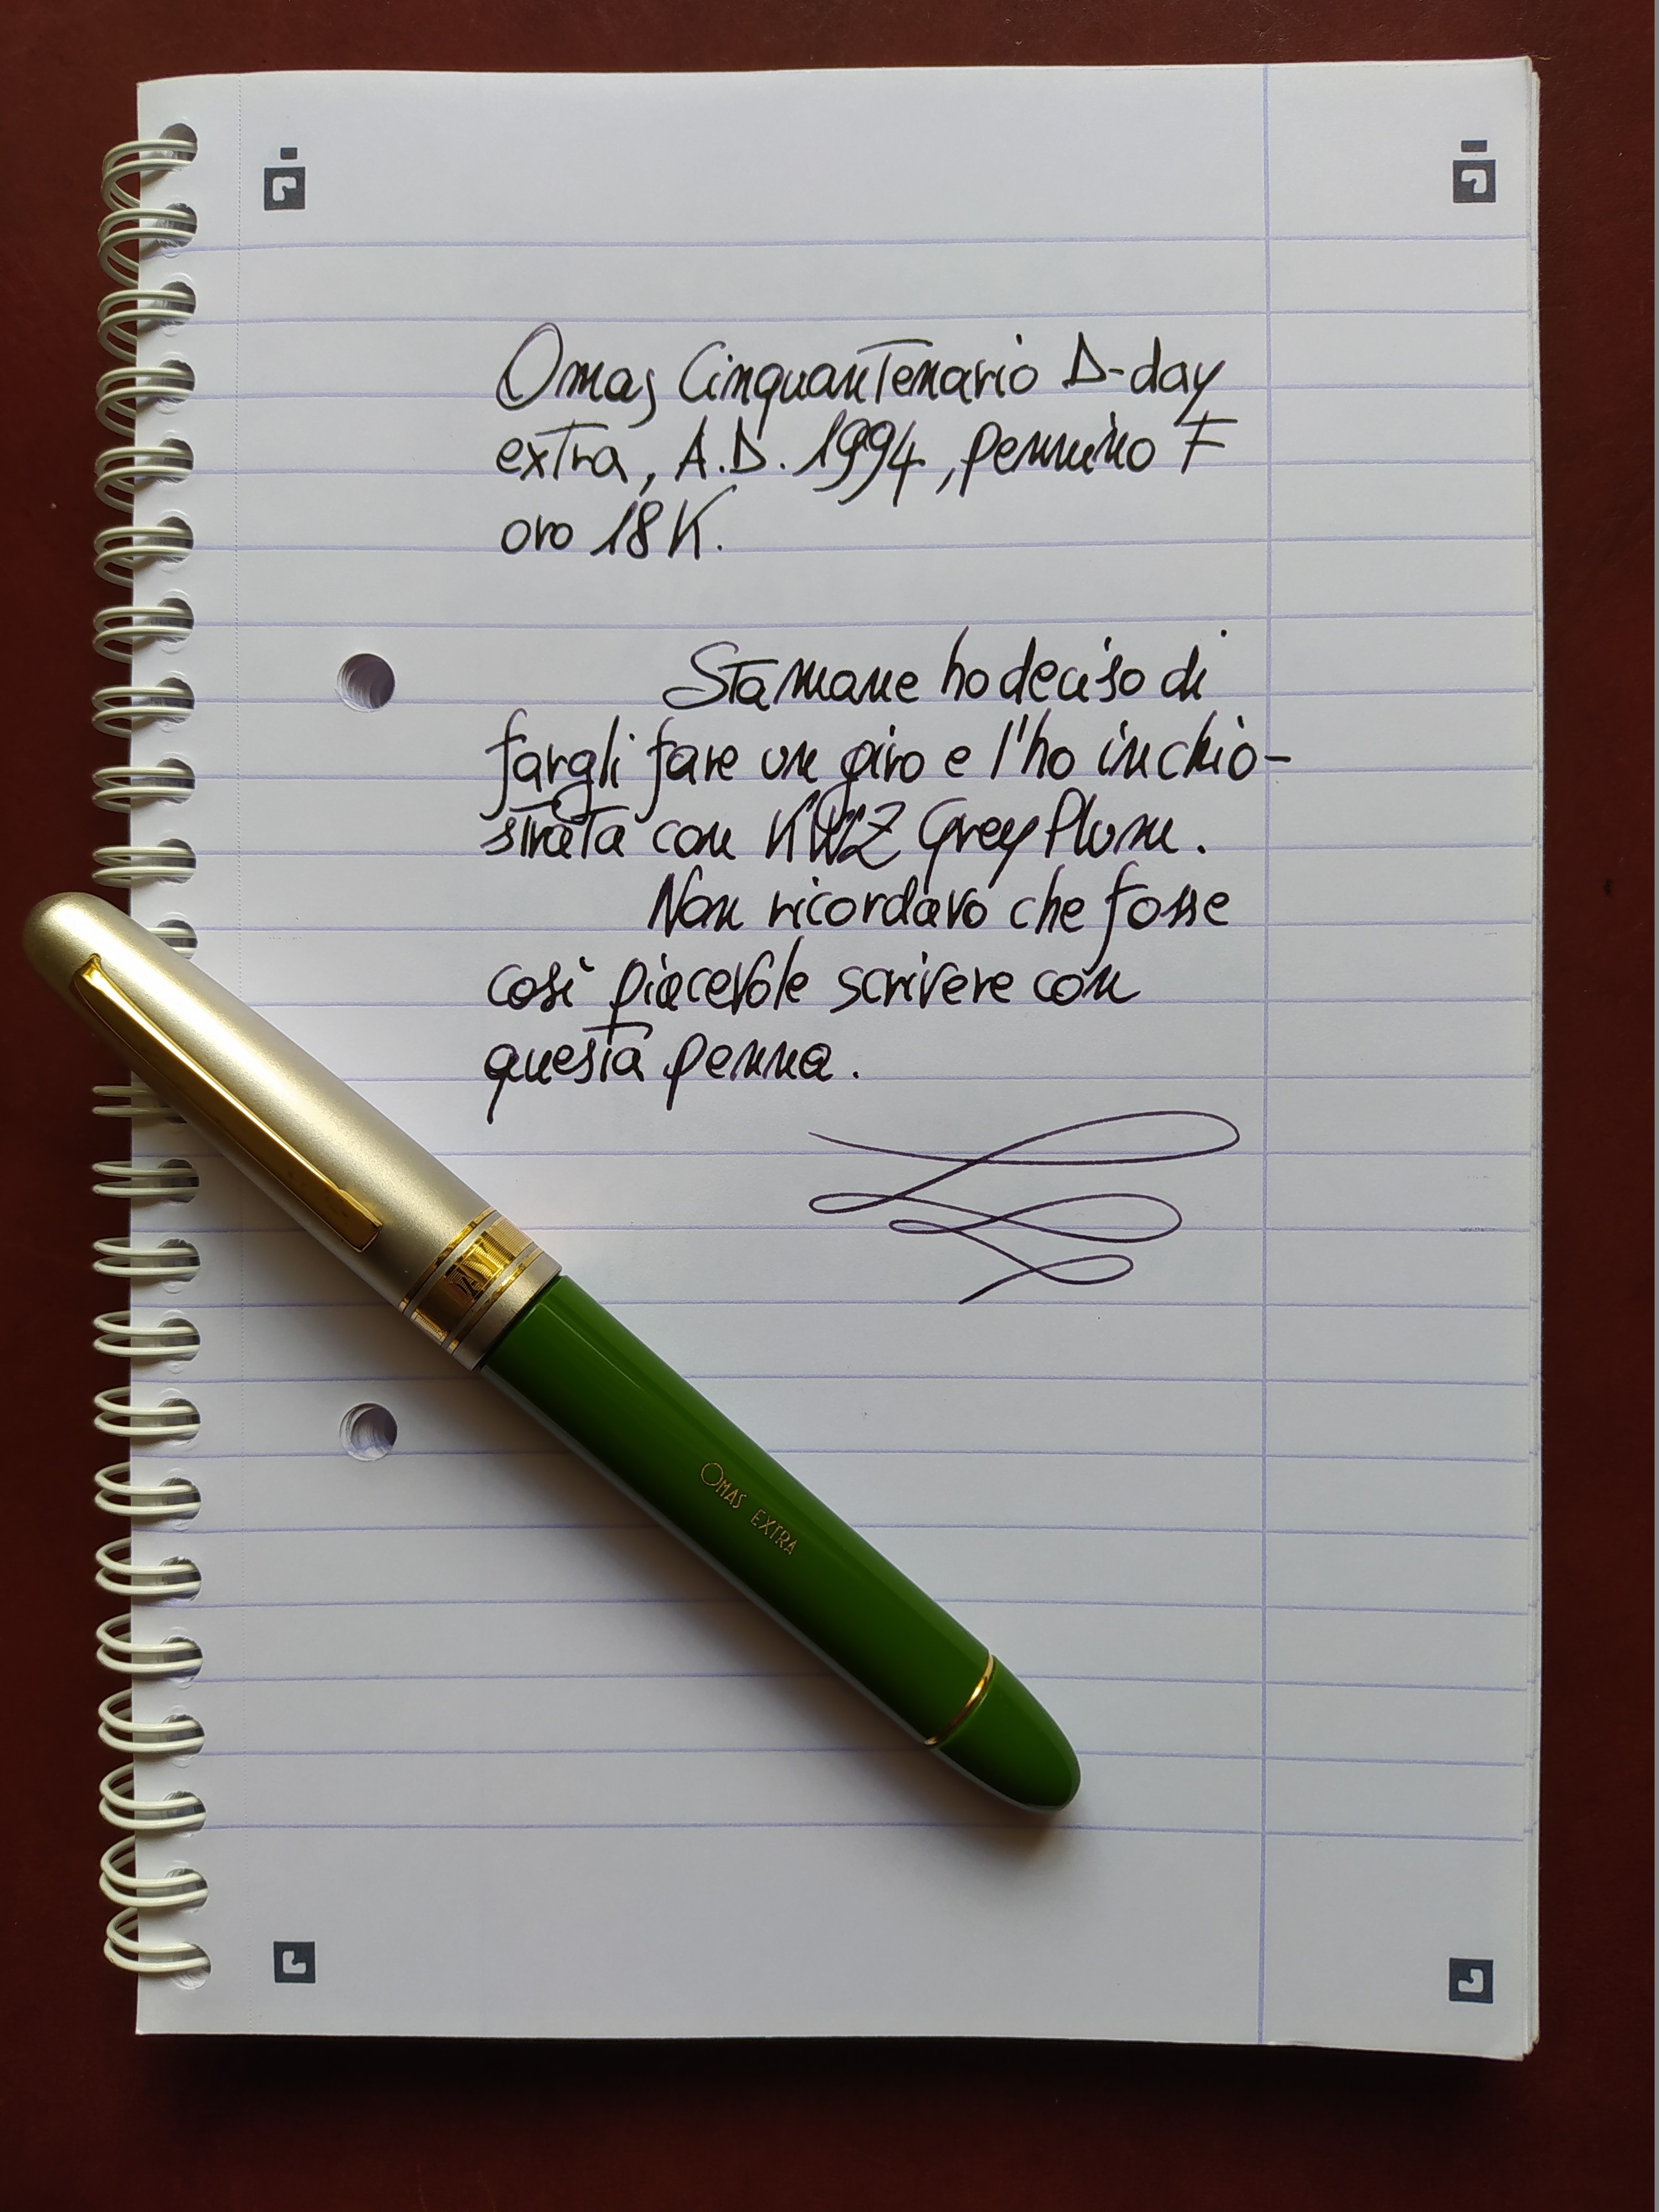 Omas Cinquantenario D-day
extra, A.D. 1994, pennino F
oro 18K.
Stamane ho deciso di
fargli fare un giro e l'ho inchio-
strata con KWZ Grey Plum.
Non ricordavo che fosse
così piacevole scrivere con
questa penna.
OMAS EXTRA